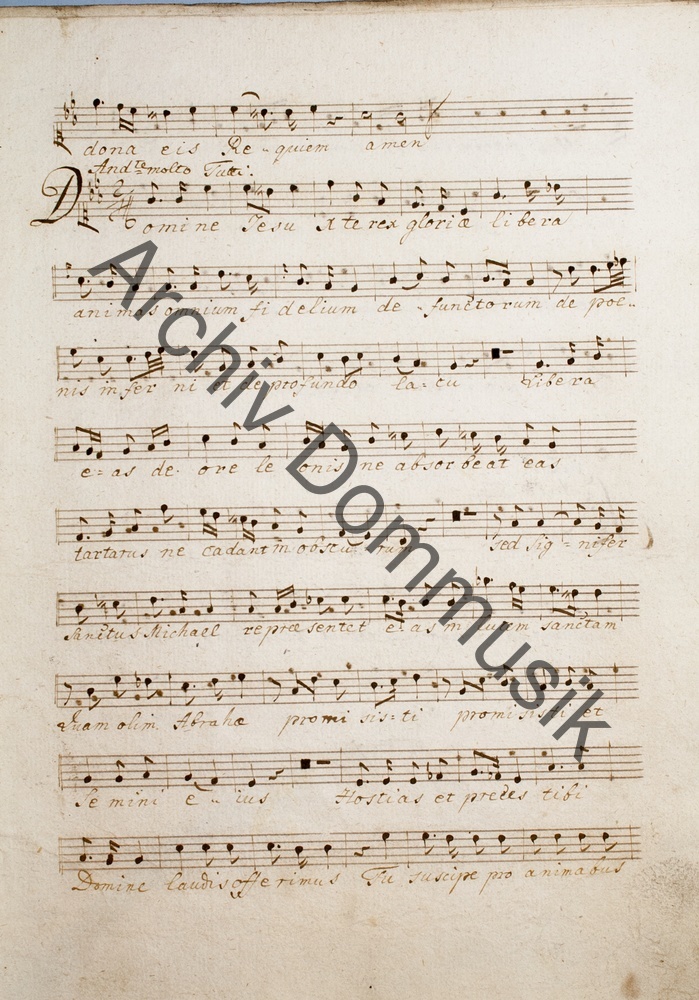 dona eis Re-quiem amen
And.te molto Tutti.
Domine Jesu Xte rex gloriæ libera
animas omnium fi delium de-functorum de poe-
nis infer ni et de profundo la-cu Libera
e-as de ore le onis ne absorbeat eas
tartarus ne cadant in obscu rum sed sig-nifer
Sanctus Michael repræsentet e-as in lucem sanctam
Quam olim Abrahæ promi sis-ti promisisti et
Se mini e-ius Hostias et preces tibi
Domine laudis offerimus Tu suscipe pro animabus
Archiv Dommusik